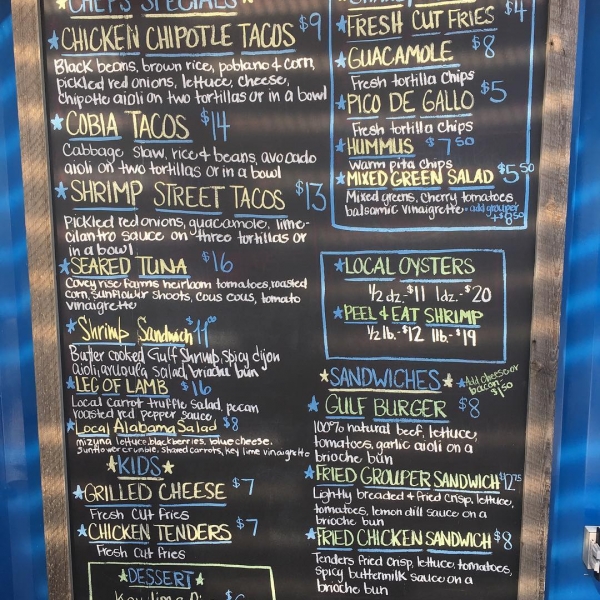 CHEFS SPECIALS
CHICKEN CHIPOTLE TACOS $9
Black beans, brown rice, poblano & corn,
pickled red onions, lettuce, cheese,
chipotle aioli on two tortillas or in a bowl
COBIA TACOS $14
Cabbage slaw, rice & beans, avocado
aioli on two tortillas or in a bowl
SHRIMP STREET TACOS $13
Pickled red onions, guacamole, lime-
cilantro sauce on three tortillas or
in a bowl
SEARED TUNA $16
Covey rise farms heirloom tomatoes, roasted
corn, sunflower shoots, cous cous, tomato
vinaigrette
Shrimp Sandwich $11
Butter cooked Gulf Shrimp, spicy dijon
aioli, arugula salad, brioche bun
LEG OF LAMB $16
Local carrot truffle salad, pecan
roasted red pepper sauce
Local Alabama Salad $8
mizuna lettuce, blackberries, blue cheese,
sunflower crumble, shared carrots, key lime vinaigrette
KIDS
GRILLED CHEESE $7
Fresh Cut Fries
CHICKEN TENDERS $7
Fresh Cut fries
DESSERT
FRESH CUT FRIES $4
GUACAMOLE $8
Fresh tortilla chips
PICO DE GALLO $5
Fresh tortilla chips
HUMMUS $7 50
Warm pita chips
MIXED GREEN SALAD $5 50
Mixed greens, cherry tomatoes
balsamic vinaigrette - add grouper
+$8 50
LOCAL OYSTERS
1/2 dz. - $11 1dz. - $20
PEEL & EAT SHRIMP
1/2 lb. - $12 1lb. - $19
SANDWICHES
Add cheese or
bacon -
$1.50
GULF BURGER $8
100% natural beef, lettuce,
tomatoes, garlic aioli on a
brioche bun
FRIED GROUPER SANDWICH $12 75
Lightly breaded & fried crisp, lettuce,
tomatoes, lemon dill sauce on a
brioche bun
FRIED CHICKEN SANDWICH $8
Tenders fried crisp, lettuce, tomatoes,
spicy buttermilk sauce on a
brioche bun